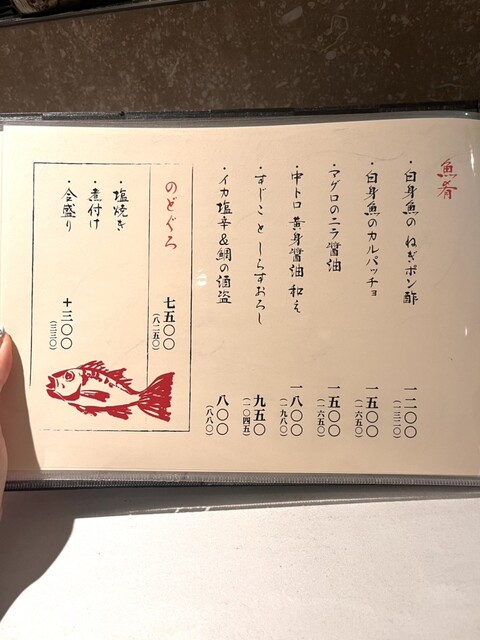 魚肴
・白身魚の ねぎポン酢 一二〇〇
(一三二〇)
・白身魚のカルパッチョ 一五〇〇
(一六五〇)
・マグロのニラ醤油 一五〇〇
(一六五〇)
・中トロ 黄身醤油 和え 一八〇〇
(一九八〇)
・すじことしらすおろし 九五〇
(一〇四五)
・イカ塩辛&鯛の酒盗 八〇〇
(八八〇)
のどぐろ 七五〇〇
(八二五〇)
・塩焼き
・煮付け
・合盛り +三〇〇
(三三〇)